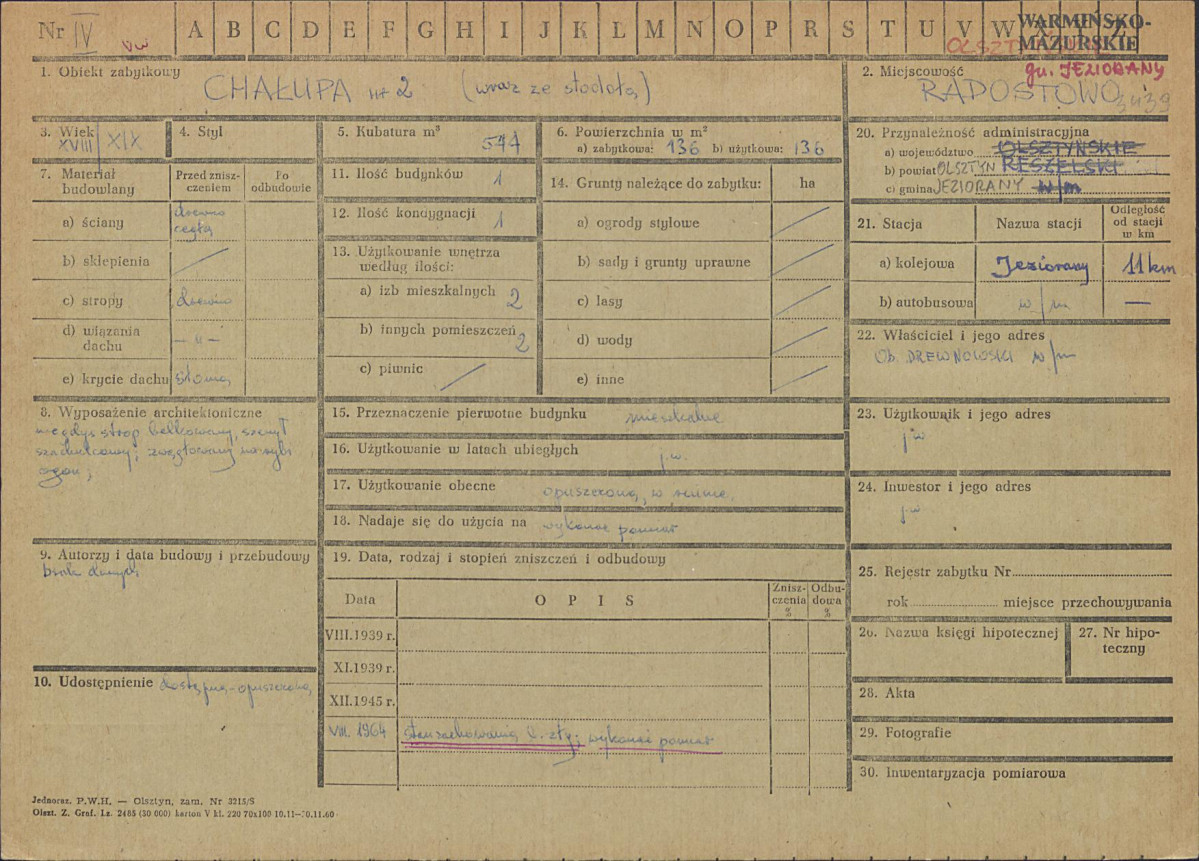 Nr IV A B C D E F G H I J K L M N O P R S T U V W
WARMIŃSKO-
MAZURSKIE
gm. JEZIORANY
1. Obiekt zabytkowy
CHAŁUPA nr 2 (wraz ze stodołą)
2. Miejscowość
RADOSTOWO
3439
3. Wiek
XVIII/XIX
4. Styl
5. Kubatura m³
544
6. Powierzchnia w m²
a) zabytkowa: 136 b) użytkowa: 136
20. Przynależność administracyjna
a) województwo OLSZTYŃSKIE
b) powiat OLSZTYN RESZELSKI
c) gmina JEZIORANY w/m
7. Materiał
budowlany
Przed znisz-
czeniem
Po
odbudowie
a) ściany drewno
cegła
b) sklepienia
c) stropy drewno
d) wiązania
dachu — " —
e) krycie dachu słoma
11. Ilość budynków 1
12. Ilość kondygnacji 1
13. Użytkowanie wnętrza
według ilości:
a) izb mieszkalnych 2
b) innych pomieszczeń 2
c) piwnic
14. Grunty należące do zabytku: ha
a) ogrody stylowe
b) sady i grunty uprawne
c) lasy
d) wody
e) inne
21. Stacja
Nazwa stacji
Odległość
od stacji
w km
a) kolejowa Jeziorany 11 km
b) autobusowa w/m —
22. Właściciel i jego adres
Ob. DREWNOWSKI w/m
8. Wyposażenie architektoniczne
strop belkowany, szczyt
szachulcowy; zwęgłowany na rybi
ogon;
15. Przeznaczenie pierwotne budynku mieszkalne
16. Użytkowanie w latach ubiegłych j.w.
17. Użytkowanie obecne opuszczona, w ruinie.
18. Nadaje się do użycia na wykonać pomiar
23. Użytkownik i jego adres
j.w
24. Inwestor i jego adres
j.w
9. Autorzy i data budowy i przebudowy
brak danych
19. Data, rodzaj i stopień zniszczeń i odbudowy
Data
O P I S
Znisz-
czenia
%
Odbu-
dowa
%
VIII.1939 r.
XI.1939 r.
XII.1945 r.
VIII. 1964 stan zachowania b. zły; wykonać pomiar
10. Udostępnienie dostępna - opuszczona
25. Rejestr zabytku Nr
rok miejsce przechowywania
26. Nazwa księgi hipotecznej
27. Nr hipo-
teczny
28. Akta
29. Fotografie
30. Inwentaryzacja pomiarowa
Jednoraz. P.W.H. — Olsztyn, zam. Nr 3215/S
Olszt. Z. Graf. Lz. 2485 (30 000) karton V kl. 220 70x100 10.11—30.11.60